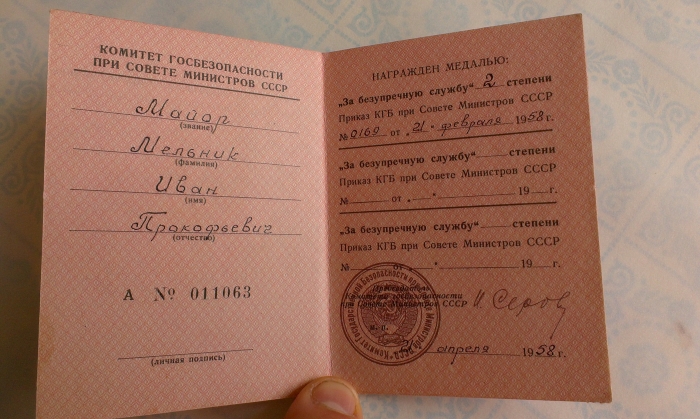 КОМИТЕТ ГОСБЕЗОПАСНОСТИ
ПРИ СОВЕТЕ МИНИСТРОВ СССР
Майор
(звание)
Мельник
(фамилия)
Иван
(имя)
Прокофьевич
(отчество)
А № 011063
(личная подпись)
НАГРАЖДЕН МЕДАЛЬЮ:
„За безупречную службу“ 2 степени
Приказ КГБ при Совете Министров СССР
№ 0169 от „21“ февраля 1958 г.
„За безупречную службу“ степени
Приказ КГБ при Совете Министров СССР
№ от „ “ 19 г.
„За безупречную службу“ степени
Приказ КГБ при Совете Министров СССР
№ от 19 г.
Председатель
Комитета госбезопасности
при Совете Министров СССР И. Серов
м. п.
апреля 1958 г.